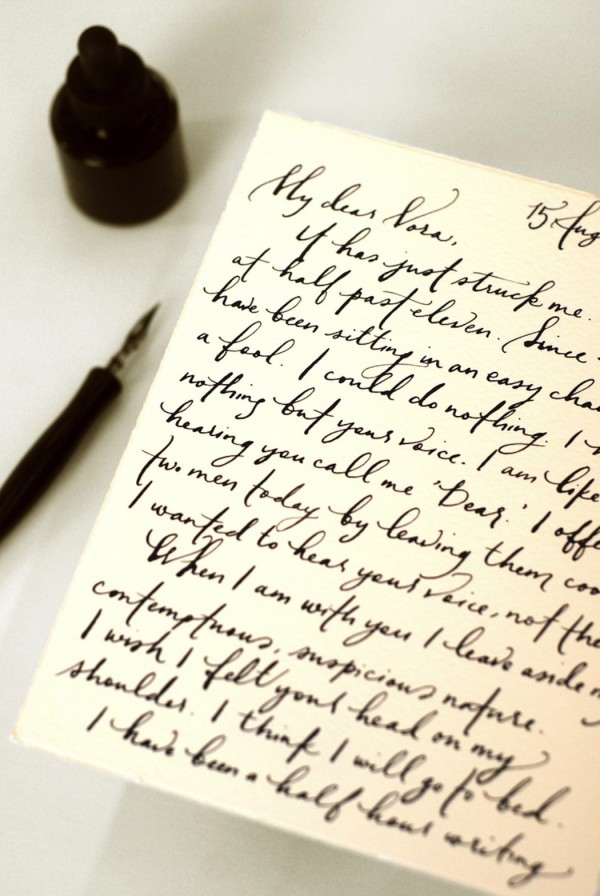 My dear Nora, 15 Aug
It has just struck me.
at half past eleven. Since
have been sitting in an easy cha
a fool. I could do nothing. I
nothing but your voice. I am like
hearing you call me 'Dear.' I offe
two men today by leaving them coo
I wanted to hear your voice, not the
When I am with you I leave aside m
contemptuous, suspicious nature.
I wish I felt your head on my
shoulder. I think I will go to bed.
I have been a half hour writing